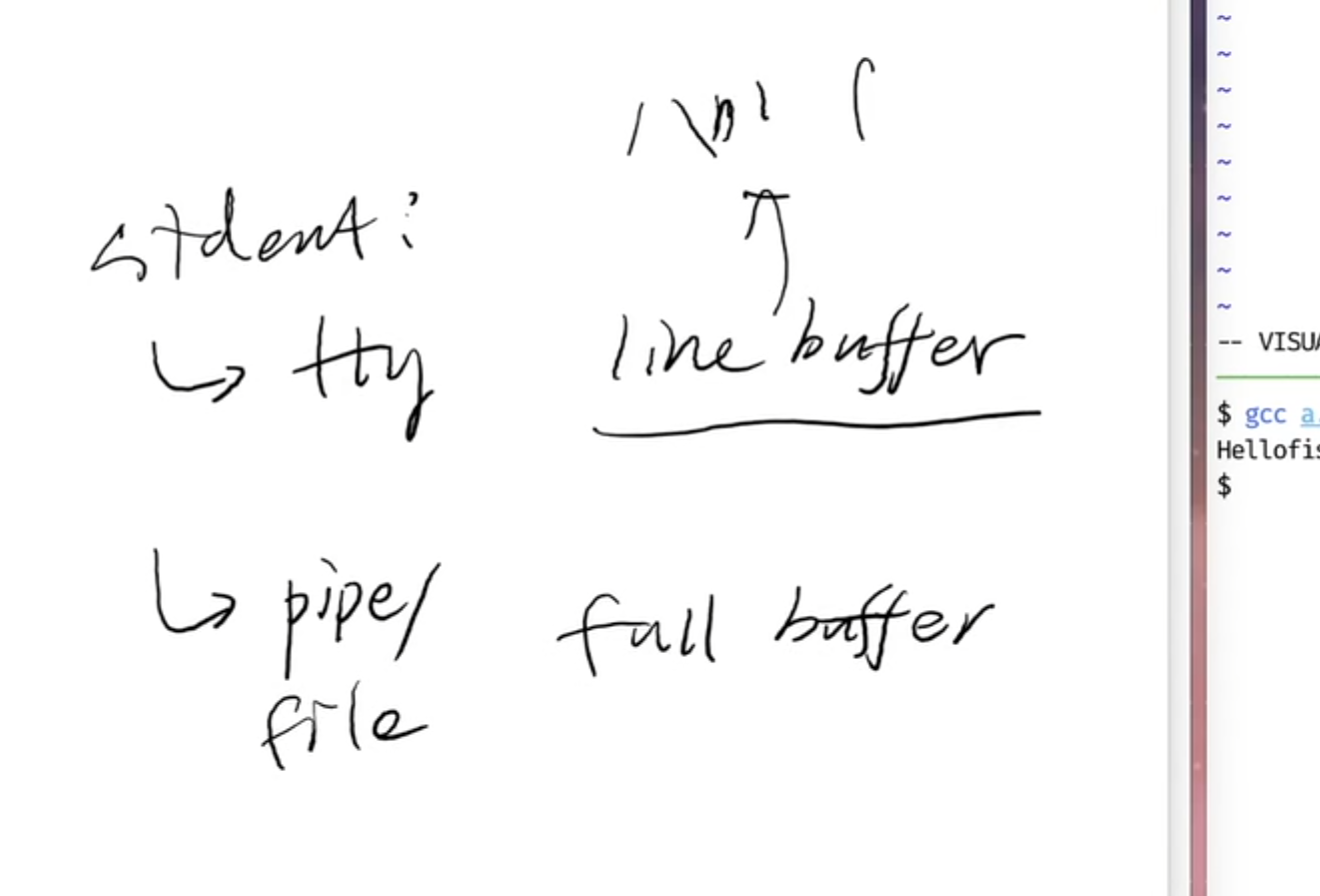 '\n' (
stdout:
↳ tty line buffer
↳ pipe/ full buffer
file
~
~
~
~
~
~
~
~
~
-- VISUA
$ gcc a.
Hellofis
$